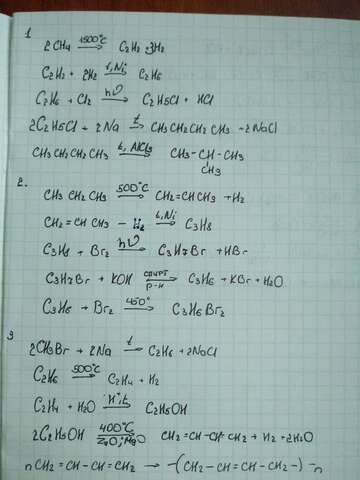 1
2CH4 1500°C → C2H2 3H2
C2H2 + 2H2 t, Ni → C2H6
C2H6 + Cl2 hν → C2H5Cl + HCl
2C2H5Cl + 2Na t → CH3CH2CH2CH3 + 2NaCl
CH3CH2CH2CH3 t, AlCl3 → CH3-CH-CH3
CH3
2.
CH3CH2CH3 500°C → CH2=CHCH3 + H2
CH2=CHCH3 - H2 t, Ni → C3H8
C3H8 + Br2 hν → C3H7Br + HBr
C3H7Br + KOH спирт р-н → C3H6 + KBr + H2O
C3H6 + Br2 450° → C3H6Br2
3
2CH3Br + 2Na t → C2H6 + 2NaCl
C2H6 500°C → C2H4 + H2
C2H4 + H2O H+, t → C2H5OH
2C2H5OH 400°C ZnO, MgO → CH2=CH-CH=CH2 + H2 + 2H2O
nCH2=CH-CH=CH2 → -(CH2-CH=CH-CH2-)-n